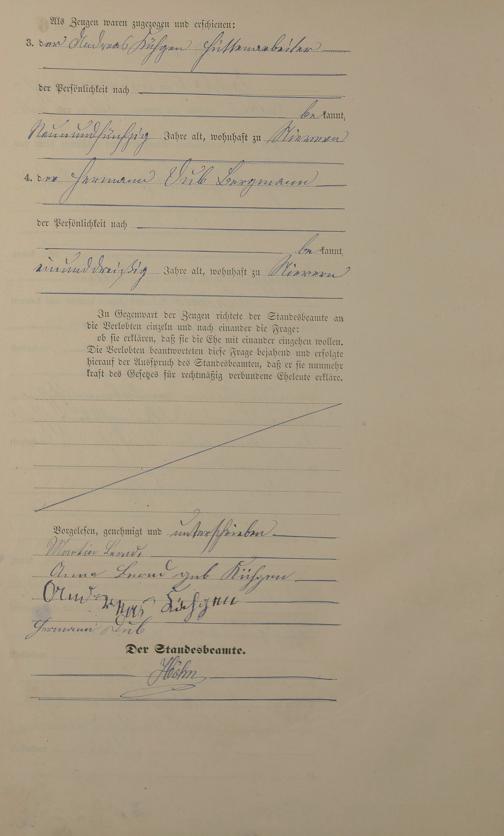 Als Zeugen waren zugezogen und erschienen:
3. der Andreas Kühgen Hüttenarbeiter
der Persönlichkeit nach
be kannt,
Neunundfünfzig Jahre alt, wohnhaft zu Nievern
4. der Hermann Dub Bergmann
der Persönlichkeit nach
be kannt,
einunddreißig Jahre alt, wohnhaft zu Nievern
In Gegenwart der Zeugen richtete der Standesbeamte an
die Verlobten einzeln und nach einander die Frage:
ob sie erklären, daß sie die Ehe mit einander eingehen wollen.
Die Verlobten beantworteten diese Frage bejahend und erfolgte
hierauf der Ausspruch des Standesbeamten, daß er sie nunmehr
kraft des Gesetzes für rechtmäßig verbundene Eheleute erkläre.
Vorgelesen, genehmigt und unterschrieben
Martin
Anna geb Kühgen
Andreas Kühgen
Hermann Dub
Der Standesbeamte.
Höhn